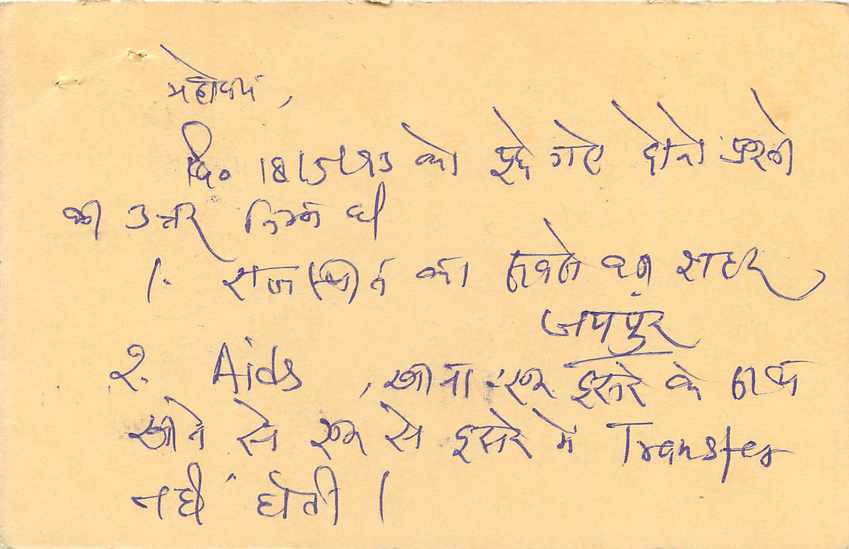 महोदय,
दि० 18/5/93 को पूछे गए दोनो प्रश्नो
का उत्तर निम्न है
1. राजस्थान का सबसे बडा शहर
जयपुर
2. Aids , खाना एक दूसरे के साथ
खाने से एक से दूसरे मे Transfer
नही होती ।